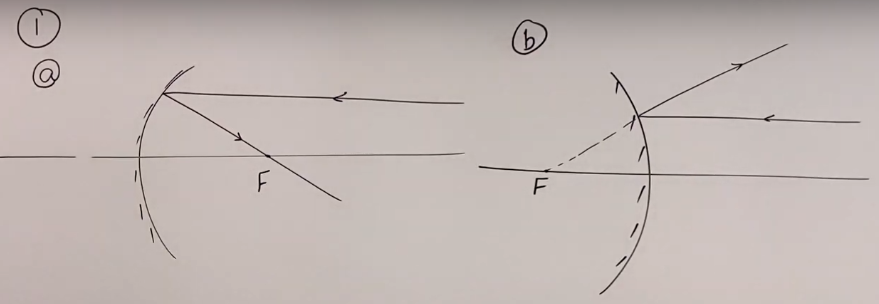 1
a
F
b
F